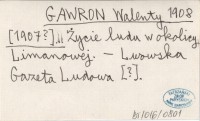 GAWRON Walenty 1908
[1907?] Życie ludu w okolicy
Limanowej. – Lwowska
Gazeta Ludowa [?].